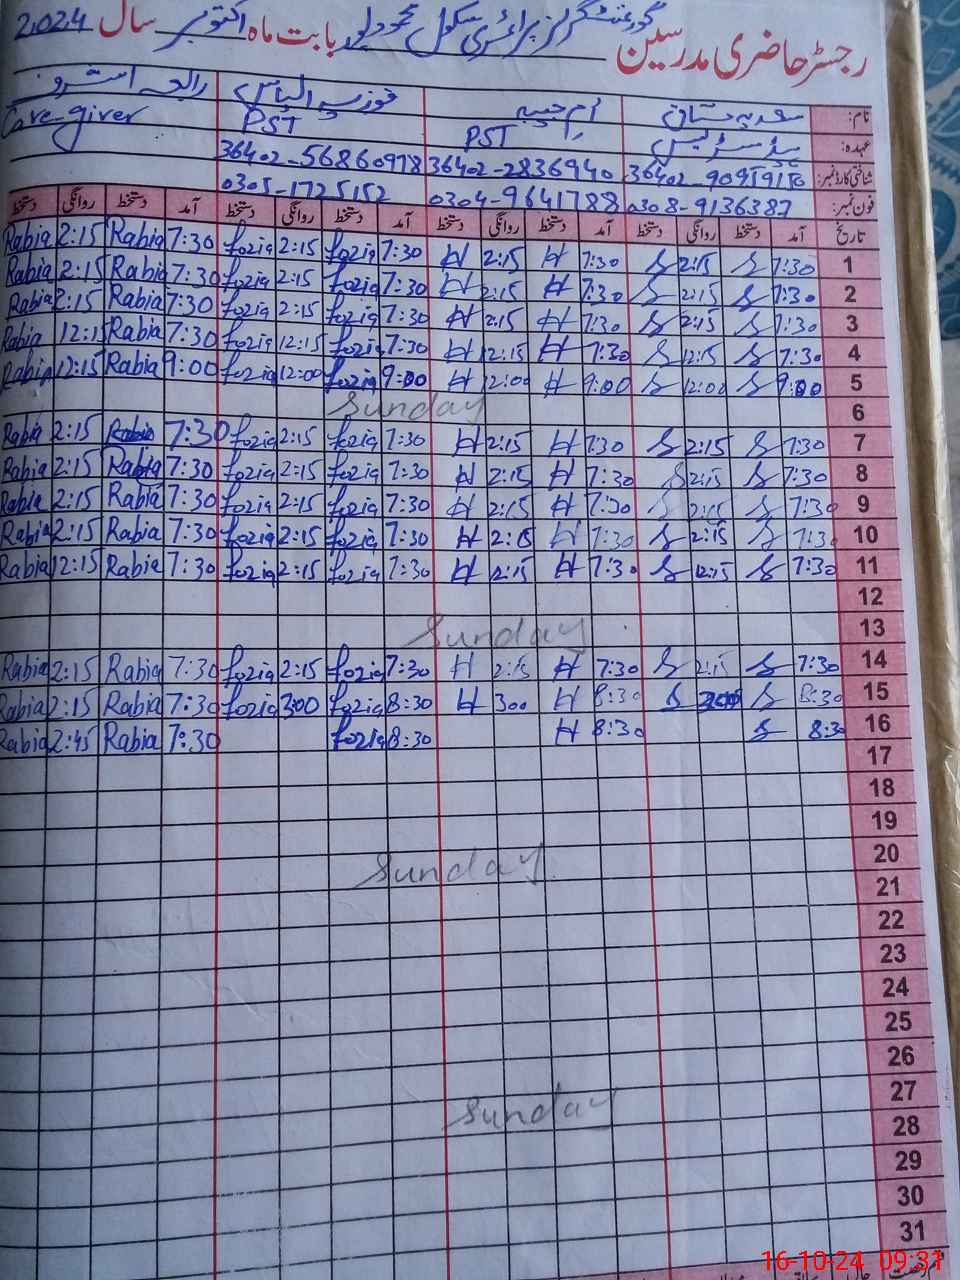 رجسٹر حاضری مدرسین گورنمنٹ گرلز پرائمری سکول محمود پور بابت ماہ اکتوبر سال 2024
نام: سعدیہ مشتاق ام حبیبہ فوزیہ الیاس رابعہ
عہدہ: ہیڈ مسٹریس PST PST Care-giver
شناختی کارڈ نمبر: 36402-2836940 36402-56860978
فون نمبر: 0308-9136387 0304-9641788 0305-1725152
تاریخ آمد دستخط روانگی دستخط آمد دستخط روانگی دستخط آمد دستخط روانگی دستخط آمد دستخط روانگی دستخط
1 7:30 S 2:15 S 7:30 H 2:15 H 7:30 fozia 2:15 fozia 7:30 Rabia 2:15 Rabia
2 7:30 S 2:15 S 7:30 H 2:15 H 7:30 fozia 2:15 fozia 7:30 Rabia 2:15 Rabia
3 7:30 S 2:15 S 7:30 H 2:15 H 7:30 fozia 2:15 fozia 7:30 Rabia 2:15 Rabia
4 7:30 S 12:15 S 7:30 H 12:15 H 7:30 fozia 12:15 fozia 7:30 Rabia 12:15 Rabia
5 9:00 S 12:00 S 9:00 H 12:00 H 9:00 fozia 12:00 fozia 9:00 Rabia 12:15 Rabia
6 Sunday
7 7:30 S 2:15 S 7:30 H 2:15 H 7:30 fozia 2:15 fozia 7:30 Rabia 2:15 Rabia
8 7:30 S 2:15 S 7:30 H 2:15 H 7:30 fozia 2:15 fozia 7:30 Rabia 2:15 Rabia
9 7:30 S 2:15 S 7:30 H 2:15 H 7:30 fozia 2:15 fozia 7:30 Rabia 2:15 Rabia
10 7:30 S 2:15 S 7:30 H 2:15 H 7:30 fozia 2:15 fozia 7:30 Rabia 2:15 Rabia
11 7:30 S 12:15 S 7:30 H 12:15 H 7:30 fozia 2:15 fozia 7:30 Rabia 12:15 Rabia
12
13 Sunday
14 7:30 S 2:15 S 7:30 H 2:15 H 7:30 fozia 2:15 fozia 7:30 Rabia 2:15 Rabia
15 8:30 S 300 S 8:30 H 300 H 8:30 fozia 300 fozia 7:30 Rabia 2:15 Rabia
16 8:30 S 8:30 H 8:30 fozia 7:30 Rabia 2:45 Rabia
17
18
19
20 Sunday
21
22
23
24
25
26
27 Sunday
28
29
30
31
16-10-24 09:31